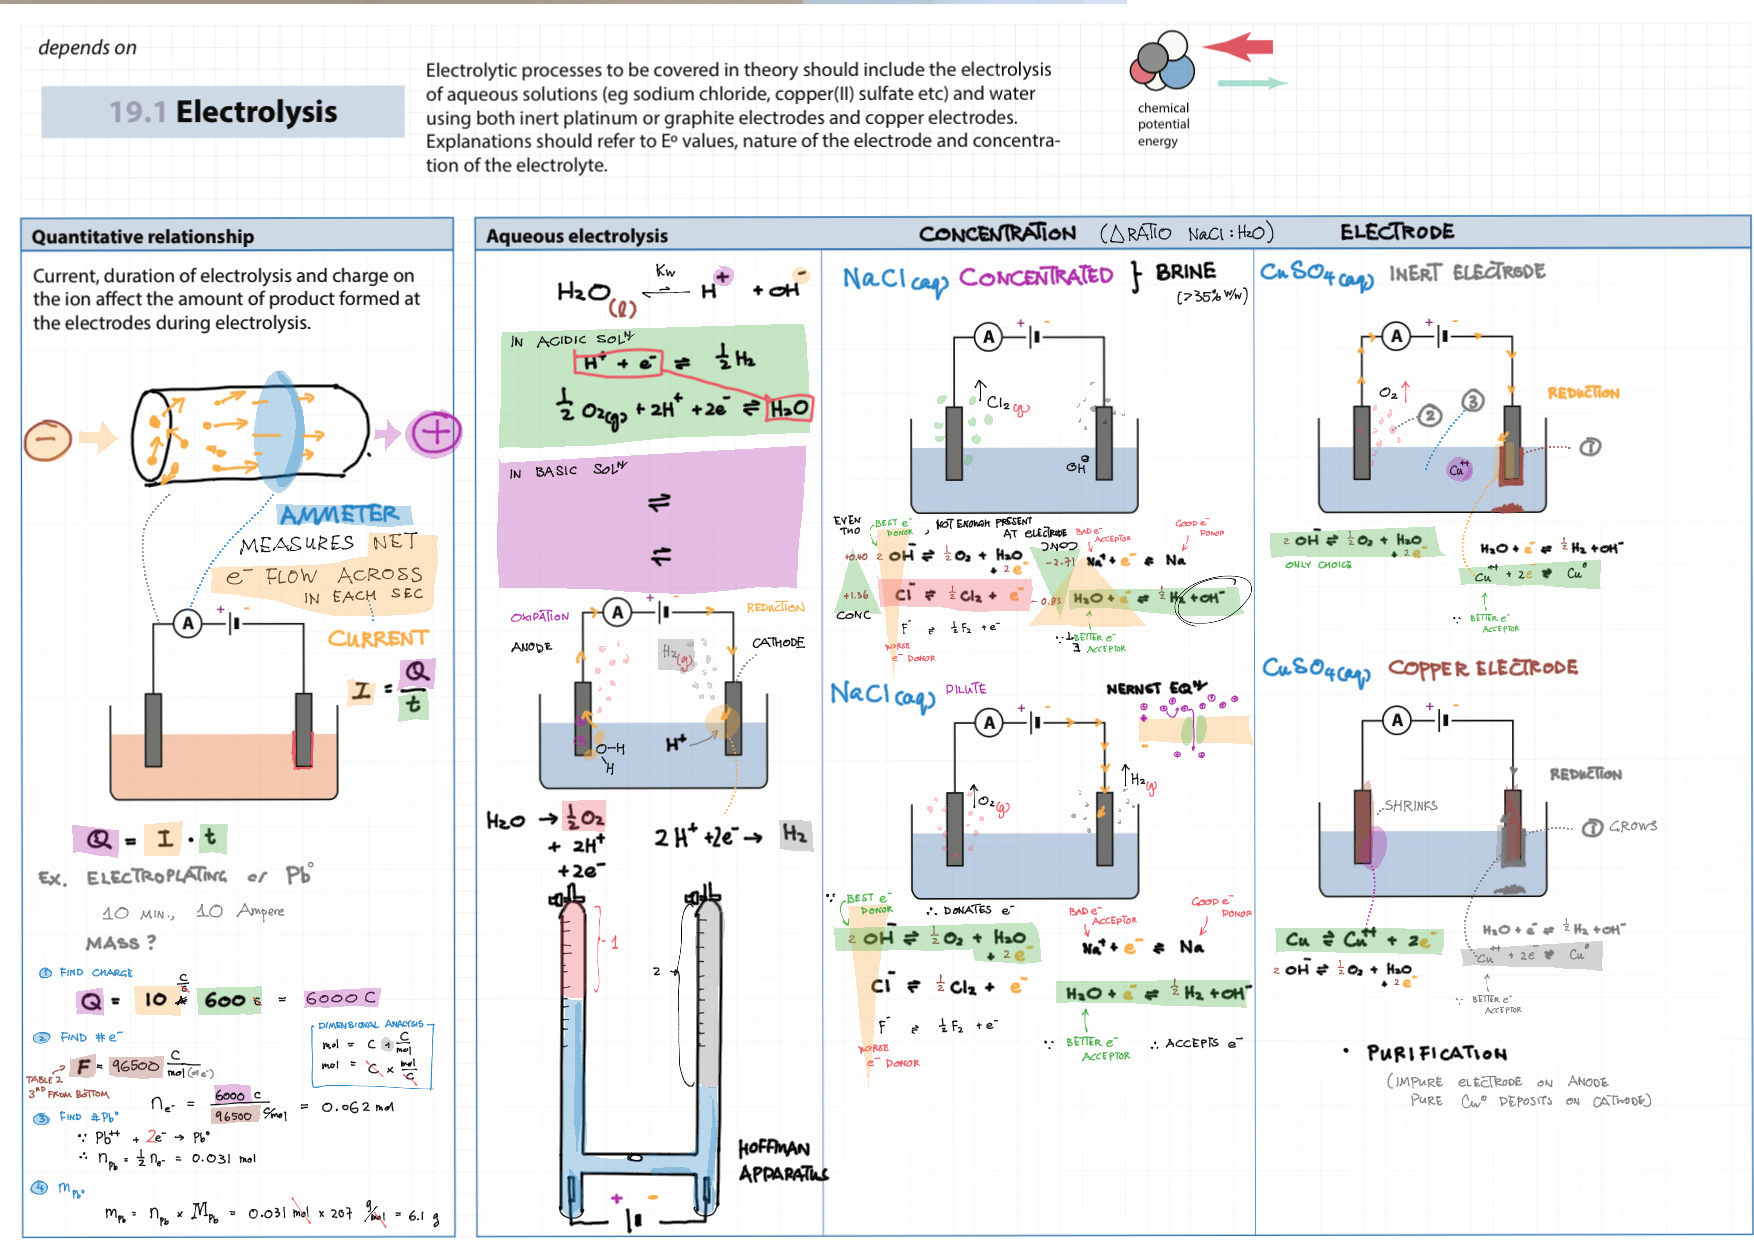 depends on
19.1 Electrolysis
Electrolytic processes to be covered in theory should include the electrolysis
of aqueous solutions (eg sodium chloride, copper(II) sulfate etc) and water
using both inert platinum or graphite electrodes and copper electrodes.
Explanations should refer to Eº values, nature of the electrode and concentra-
tion of the electrolyte.
chemical
potential
energy
Quantitative relationship
Current, duration of electrolysis and charge on
the ion affect the amount of product formed at
the electrodes during electrolysis.
-
+
AMMETER
MEASURES NET
e⁻ FLOW ACROSS
IN EACH SEC
A
+ -
CURRENT
I = Q/t
Q = I · t
EX. ELECTROPLATING of Pb°
10 MIN., 10 Ampere
MASS?
① FIND CHARGE
Q = 10 C/s 600 s = 6000 C
② FIND # e⁻
F = 96500 C/mol (of e⁻)
TABLE 2
3RD FROM BOTTOM
DIMENSIONAL ANALYSIS
mol = C ÷ C/mol
mol = C × mol/C
n e⁻ = 6000 C / 96500 C/mol = 0.062 mol
③ FIND # Pb°
∵ Pb⁺⁺ + 2e⁻ → Pb°
∴ n Pb = ½ n e⁻ = 0.031 mol
④ m Pb°
m Pb = n Pb × M Pb = 0.031 mol × 207 g/mol = 6.1 g
Aqueous electrolysis
H₂O (l) ⇌ H⁺ + OH⁻
Kw
IN ACIDIC SOLN
H⁺ + e⁻ ⇌ ½ H₂
½ O₂(g) + 2H⁺ + 2e⁻ ⇌ H₂O
IN BASIC SOLN
⇌
⇌
OXIDATION
A
+ -
REDUCTION
ANODE
H₂(g)
CATHODE
O-H
H
H⁺
H₂O → ½ O₂
+ 2H⁺
+ 2e⁻
2H⁺ + 2e⁻ → H₂
1
2
HOFFMAN
APPARATUS
+ -
CONCENTRATION (Δ RATIO NaCl : H₂O)
NaCl(aq) CONCENTRATED } BRINE
(>35% w/w)
A
+ -
Cl₂(g)
OH⁻
EVEN
THO
BEST e⁻
DONOR
NOT ENOUGH PRESENT
AT ELECTRODE
CONC
BAD e⁻
ACCEPTOR
GOOD e⁻
DONOR
+0.40 2 OH⁻ ⇌ ½ O₂ + H₂O
+ 2e⁻
-2.71 Na⁺ + e⁻ ⇌ Na
+1.36 Cl⁻ ⇌ ½ Cl₂ + e⁻
-0.83 H₂O + e⁻ ⇌ ½ H₂ + OH⁻
CONC
F⁻ ⇌ ½ F₂ + e⁻
WORSE
e⁻ DONOR
∵ BETTER e⁻
ACCEPTOR
NaCl(aq) DILUTE
NERNST EQN
A
+ -
O₂(g)
H₂(g)
∵ BEST e⁻
DONOR
∴ DONATES e⁻
BAD e⁻
ACCEPTOR
GOOD e⁻
DONOR
2 OH⁻ ⇌ ½ O₂ + H₂O
+ 2e⁻
Na⁺ + e⁻ ⇌ Na
Cl⁻ ⇌ ½ Cl₂ + e⁻
H₂O + e⁻ ⇌ ½ H₂ + OH⁻
F⁻ ⇌ ½ F₂ + e⁻
WORSE
e⁻ DONOR
∵ BETTER e⁻
ACCEPTOR
∴ ACCEPTS e⁻
ELECTRODE
CuSO₄(aq) INERT ELECTRODE
A
+ -
O₂
②
③
REDUCTION
①
Cu⁺⁺
2 OH⁻ ⇌ ½ O₂ + H₂O
+ 2e⁻
ONLY CHOICE
H₂O + e⁻ ⇌ ½ H₂ + OH⁻
Cu⁺⁺ + 2e⁻ ⇌ Cu°
∵ BETTER e⁻
ACCEPTOR
CuSO₄(aq) COPPER ELECTRODE
A
+ -
REDUCTION
SHRINKS
① GROWS
Cu ⇌ Cu⁺⁺ + 2e⁻
2 OH⁻ ⇌ ½ O₂ + H₂O
+ 2e⁻
H₂O + e⁻ ⇌ ½ H₂ + OH⁻
Cu⁺⁺ + 2e⁻ ⇌ Cu°
∵ BETTER e⁻
ACCEPTOR
• PURIFICATION
(IMPURE ELECTRODE ON ANODE
PURE Cu° DEPOSITS ON CATHODE)